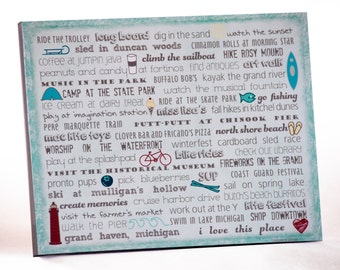 RIDE THE TROLLEY long board dig in the sand watch the sunset
sled in duncan woods cinnamon rolls at morning star
coffee at jumpin java climb the sailboat HIKE ROSY MOUND
MUSIC IN THE PARK BUFFALO BOB'S find antiques art walk
peanuts and candy at fortino's kayak the grand river
CAMP AT THE STATE PARK watch the musical fountain
ice cream at dairy treat ride AT THE STATE PARK go fishing
play at imagination station miss lisa's fall hikes in kitchel dunes
PERE MARQUETTE TRAM PUTT-PUTT AT CHINOOK PIER
mic lite tors CLOVER BAR AND FRICANO'S PIZZA north shore beach
WORSHIP ON THE WATERFRONT winterfest cardboard sled race
play at the splashpad bike rides check out upbeats
VISIT THE HISTORICAL MUSEUM FIREWORKS ON THE GRAND
pronto pups pick blueberries SUP COAST GUARD FESTIVAL
ski at mulligan's hollow sail on spring lake
create memories cruise harbor drive butch's beach burritos
visit the farmer's market work out at the Y kite festival
walk the pier swim in lake michigan SHOP DOWNTOWN
grand haven, michigan i love this place